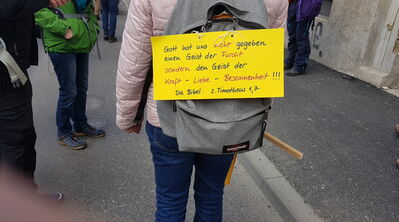 Gott hat uns nicht gegeben
einen Geist der Furcht
sondern den Geist der
Kraft - Liebe - Besonnenheit !!!
Die Bibel: 2. Timotheus 1,7
EASTPAK